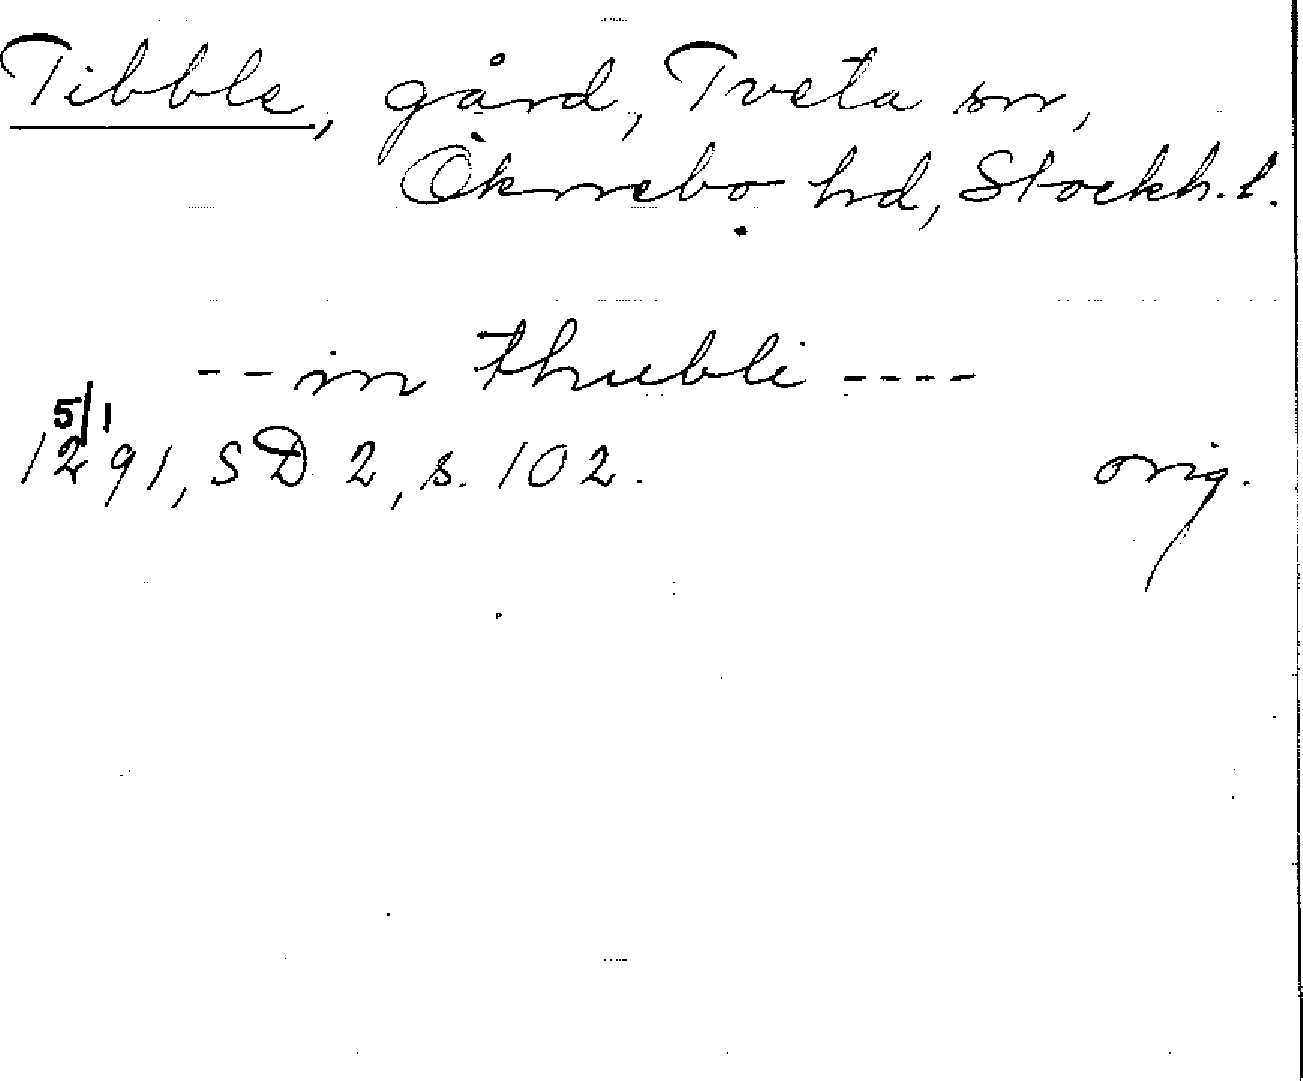 Tibble, gård, Tveta sn,
Öknebo hd, Stockh. l.
-- in thuebli ----
5/1
1291, SD 2, s. 102. orig.